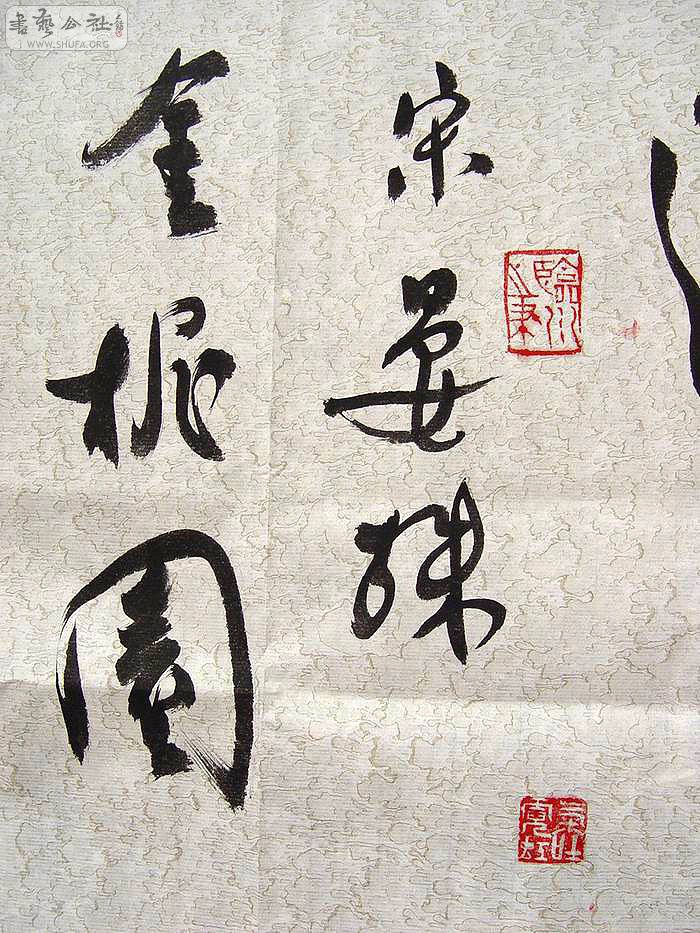 書藝公社
WWW.SHUFA.ORG
宋晏殊
金柅園